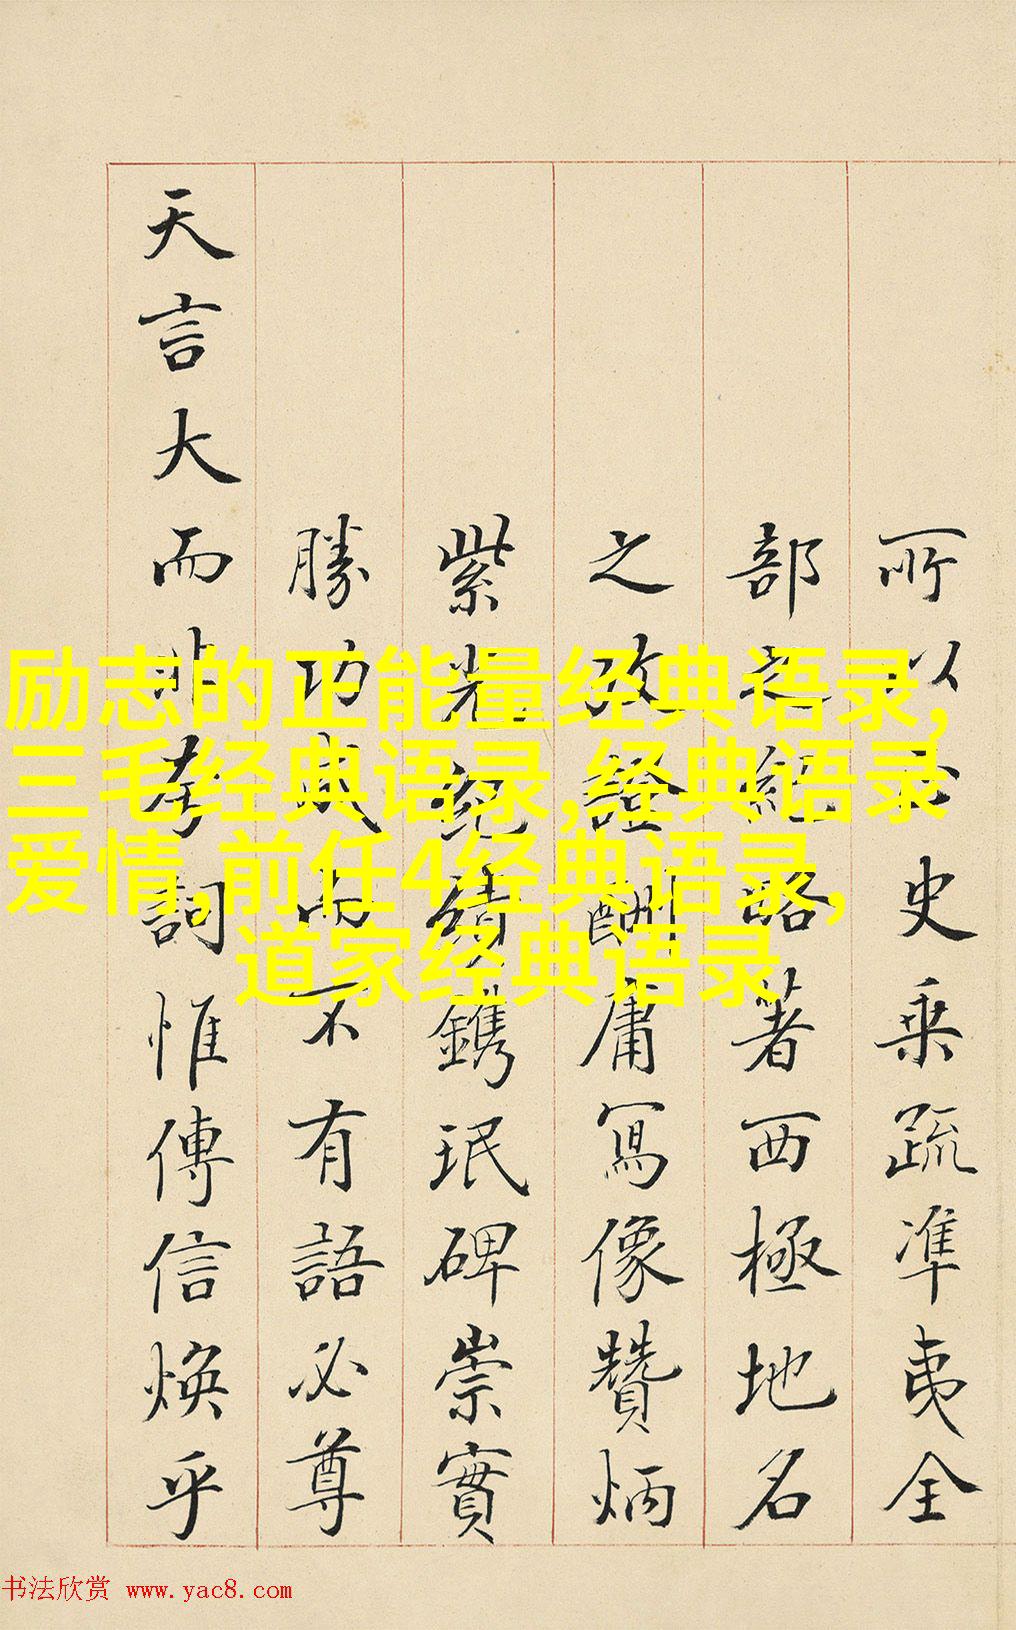 所以 史乘疏準夷全
部之紀略著西極地名
之攷證酬庸寫像贊炳
紫光紀績鐫珉碑崇實
勝功成而不有語必尊
天言大而非夸詞惟傳信煥乎
励志的正能量经典语录,
三毛经典语录,经典语录
爱情,前任4经典语录,
道家经典语录
书法欣赏 www.yac8.com